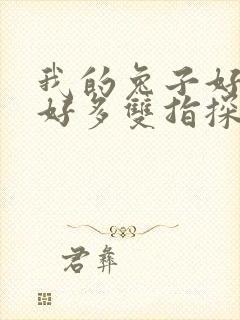 我的兔子好
好多雙指探
君彝